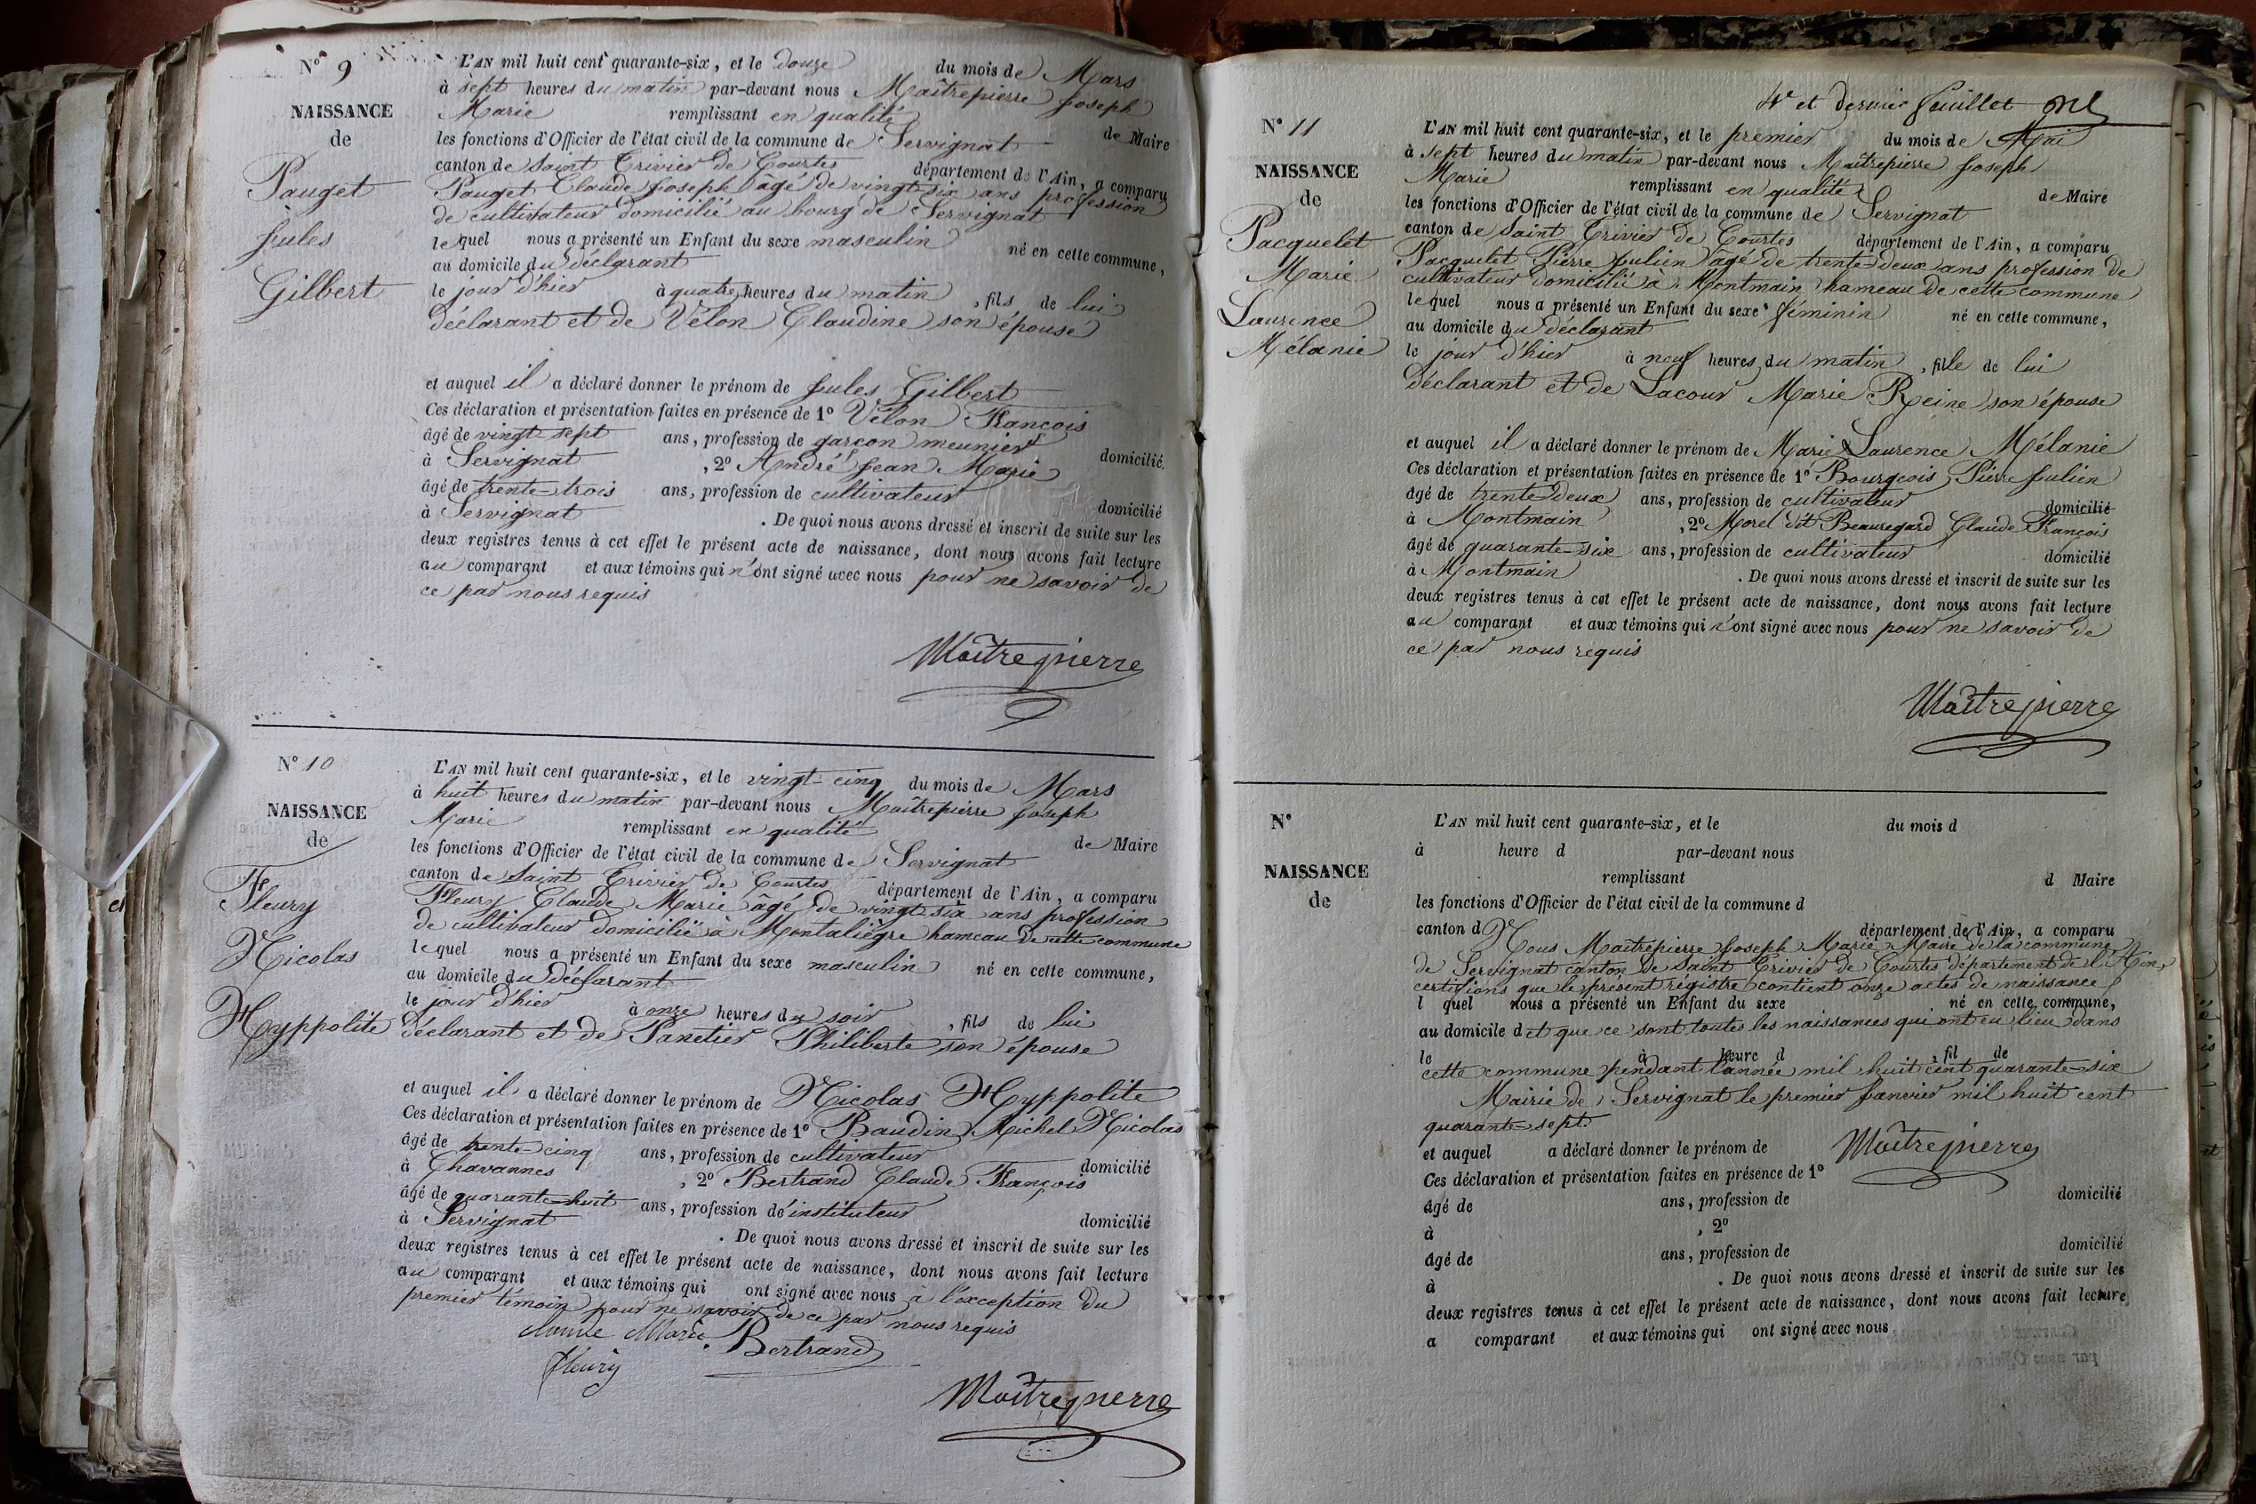 N° 9
NAISSANCE
de
Pauget
Jules
Gilbert
L'AN mil huit cent quarante-six, et le douze du mois de Mars
à sept heures du matin par-devant nous Maîtrepierre Joseph
Marie remplissant en qualité de Maire
les fonctions d'Officier de l'état civil de la commune de Servignat
canton de Saint Trivier de Courtes département de l'Ain, a comparu
Pauget Claude Joseph âgé de vingt six ans profession
de cultivateur domicilié au bourg de Servignat
lequel nous a présenté un Enfant du sexe masculin né en cette commune,
au domicile du déclarant
le jour d'hier à quatre heures du matin, fils de lui
déclarant et de Vélon Claudine son épouse
et auquel il a déclaré donner le prénom de Jules Gilbert
Ces déclaration et présentation faites en présence de 1° Vélon François
âgé de vingt-sept ans, profession de garçon meunier domicilié
à Servignat, 2° André Jean Marie
âgé de trente-trois ans, profession de cultivateur domicilié
à Servignat. De quoi nous avons dressé et inscrit de suite sur les
deux registres tenus à cet effet le présent acte de naissance, dont nous avons fait lecture
au comparant et aux témoins qui n'ont signé avec nous pour ne savoir de
ce par nous requis
Maîtrepierre
N° 10
NAISSANCE
de
Fleury
Nicolas
Hyppolite
L'AN mil huit cent quarante-six, et le vingt-cinq du mois de Mars
à huit heures du matin par-devant nous Maîtrepierre Joseph
Marie remplissant en qualité de Maire
les fonctions d'Officier de l'état civil de la commune de Servignat
canton de Saint Trivier de Courtes département de l'Ain, a comparu
Fleury Claude Marie âgé de vingt six ans profession
de cultivateur domicilié à Montaliègre hameau de cette commune
lequel nous a présenté un Enfant du sexe masculin né en cette commune,
au domicile du déclarant
le jour d'hier à onze heures du soir, fils de lui
déclarant et de Panetier Philiberte son épouse
et auquel il a déclaré donner le prénom de Nicolas Hyppolite
Ces déclaration et présentation faites en présence de 1° Baudin Michel Nicolas
âgé de trente-cinq ans, profession de cultivateur domicilié
à Chavannes, 2° Bertrand Claude François
âgé de quarante-huit ans, profession d'instituteur domicilié
à Servignat. De quoi nous avons dressé et inscrit de suite sur les
deux registres tenus à cet effet le présent acte de naissance, dont nous avons fait lecture
au comparant et aux témoins qui ont signé avec nous à l'exception du
premier témoin pour ne savoir de ce par nous requis
Claude Marie Bertrand
fleury
Maîtrepierre
4e et dernier feuillet
N° 11
NAISSANCE
de
Pacquelet
Marie
Laurence
Mélanie
L'AN mil huit cent quarante-six, et le premier du mois de Mai
à sept heures du matin par-devant nous Maîtrepierre Joseph
Marie remplissant en qualité de Maire
les fonctions d'Officier de l'état civil de la commune de Servignat
canton de Saint Trivier de Courtes département de l'Ain, a comparu
Pacquelet Pierre Julien âgé de trente-deux ans profession de
cultivateur domicilié à Montmain hameau de cette commune
lequel nous a présenté un Enfant du sexe féminin né en cette commune,
au domicile du déclarant
le jour d'hier à neuf heures du matin, fille de lui
déclarant et de Lacour Marie Reine son épouse
et auquel il a déclaré donner le prénom de Marie Laurence Mélanie
Ces déclaration et présentation faites en présence de 1° Bourgeois Pierre Julien
âgé de trente-deux ans, profession de cultivateur domicilié
à Montmain, 2° Morel dit Beauregard Claude François
âgé de quarante-six ans, profession de cultivateur domicilié
à Montmain. De quoi nous avons dressé et inscrit de suite sur les
deux registres tenus à cet effet le présent acte de naissance, dont nous avons fait lecture
au comparant et aux témoins qui n'ont signé avec nous pour ne savoir de
ce par nous requis
Maîtrepierre
N°
NAISSANCE
de
L'AN mil huit cent quarante-six, et le du mois d
à heure d par-devant nous
remplissant d Maire
les fonctions d'Officier de l'état civil de la commune d
canton d département de l'Ain, a comparu
Nous Maîtrepierre Joseph Marie Maire de la commune
de Servignat canton de Saint Trivier de Courtes département de l'Ain,
certifions que le présent registre contient onze actes de naissance
l quel nous a présenté un Enfant du sexe né en cette commune,
au domicile d et que ce sont toutes les naissances qui ont eu lieu dans
le à heure d, fil de
cette commune pendant l'année mil huit cent quarante-six
Mairie de Servignat le premier Janvier mil huit cent
quarante-sept.
Maîtrepierre
et auquel a déclaré donner le prénom de
Ces déclaration et présentation faites en présence de 1°
âgé de ans, profession de domicilié
à, 2°
âgé de ans, profession de domicilié
à. De quoi nous avons dressé et inscrit de suite sur les
deux registres tenus à cet effet le présent acte de naissance, dont nous avons fait lecture
a comparant et aux témoins qui ont signé avec nous